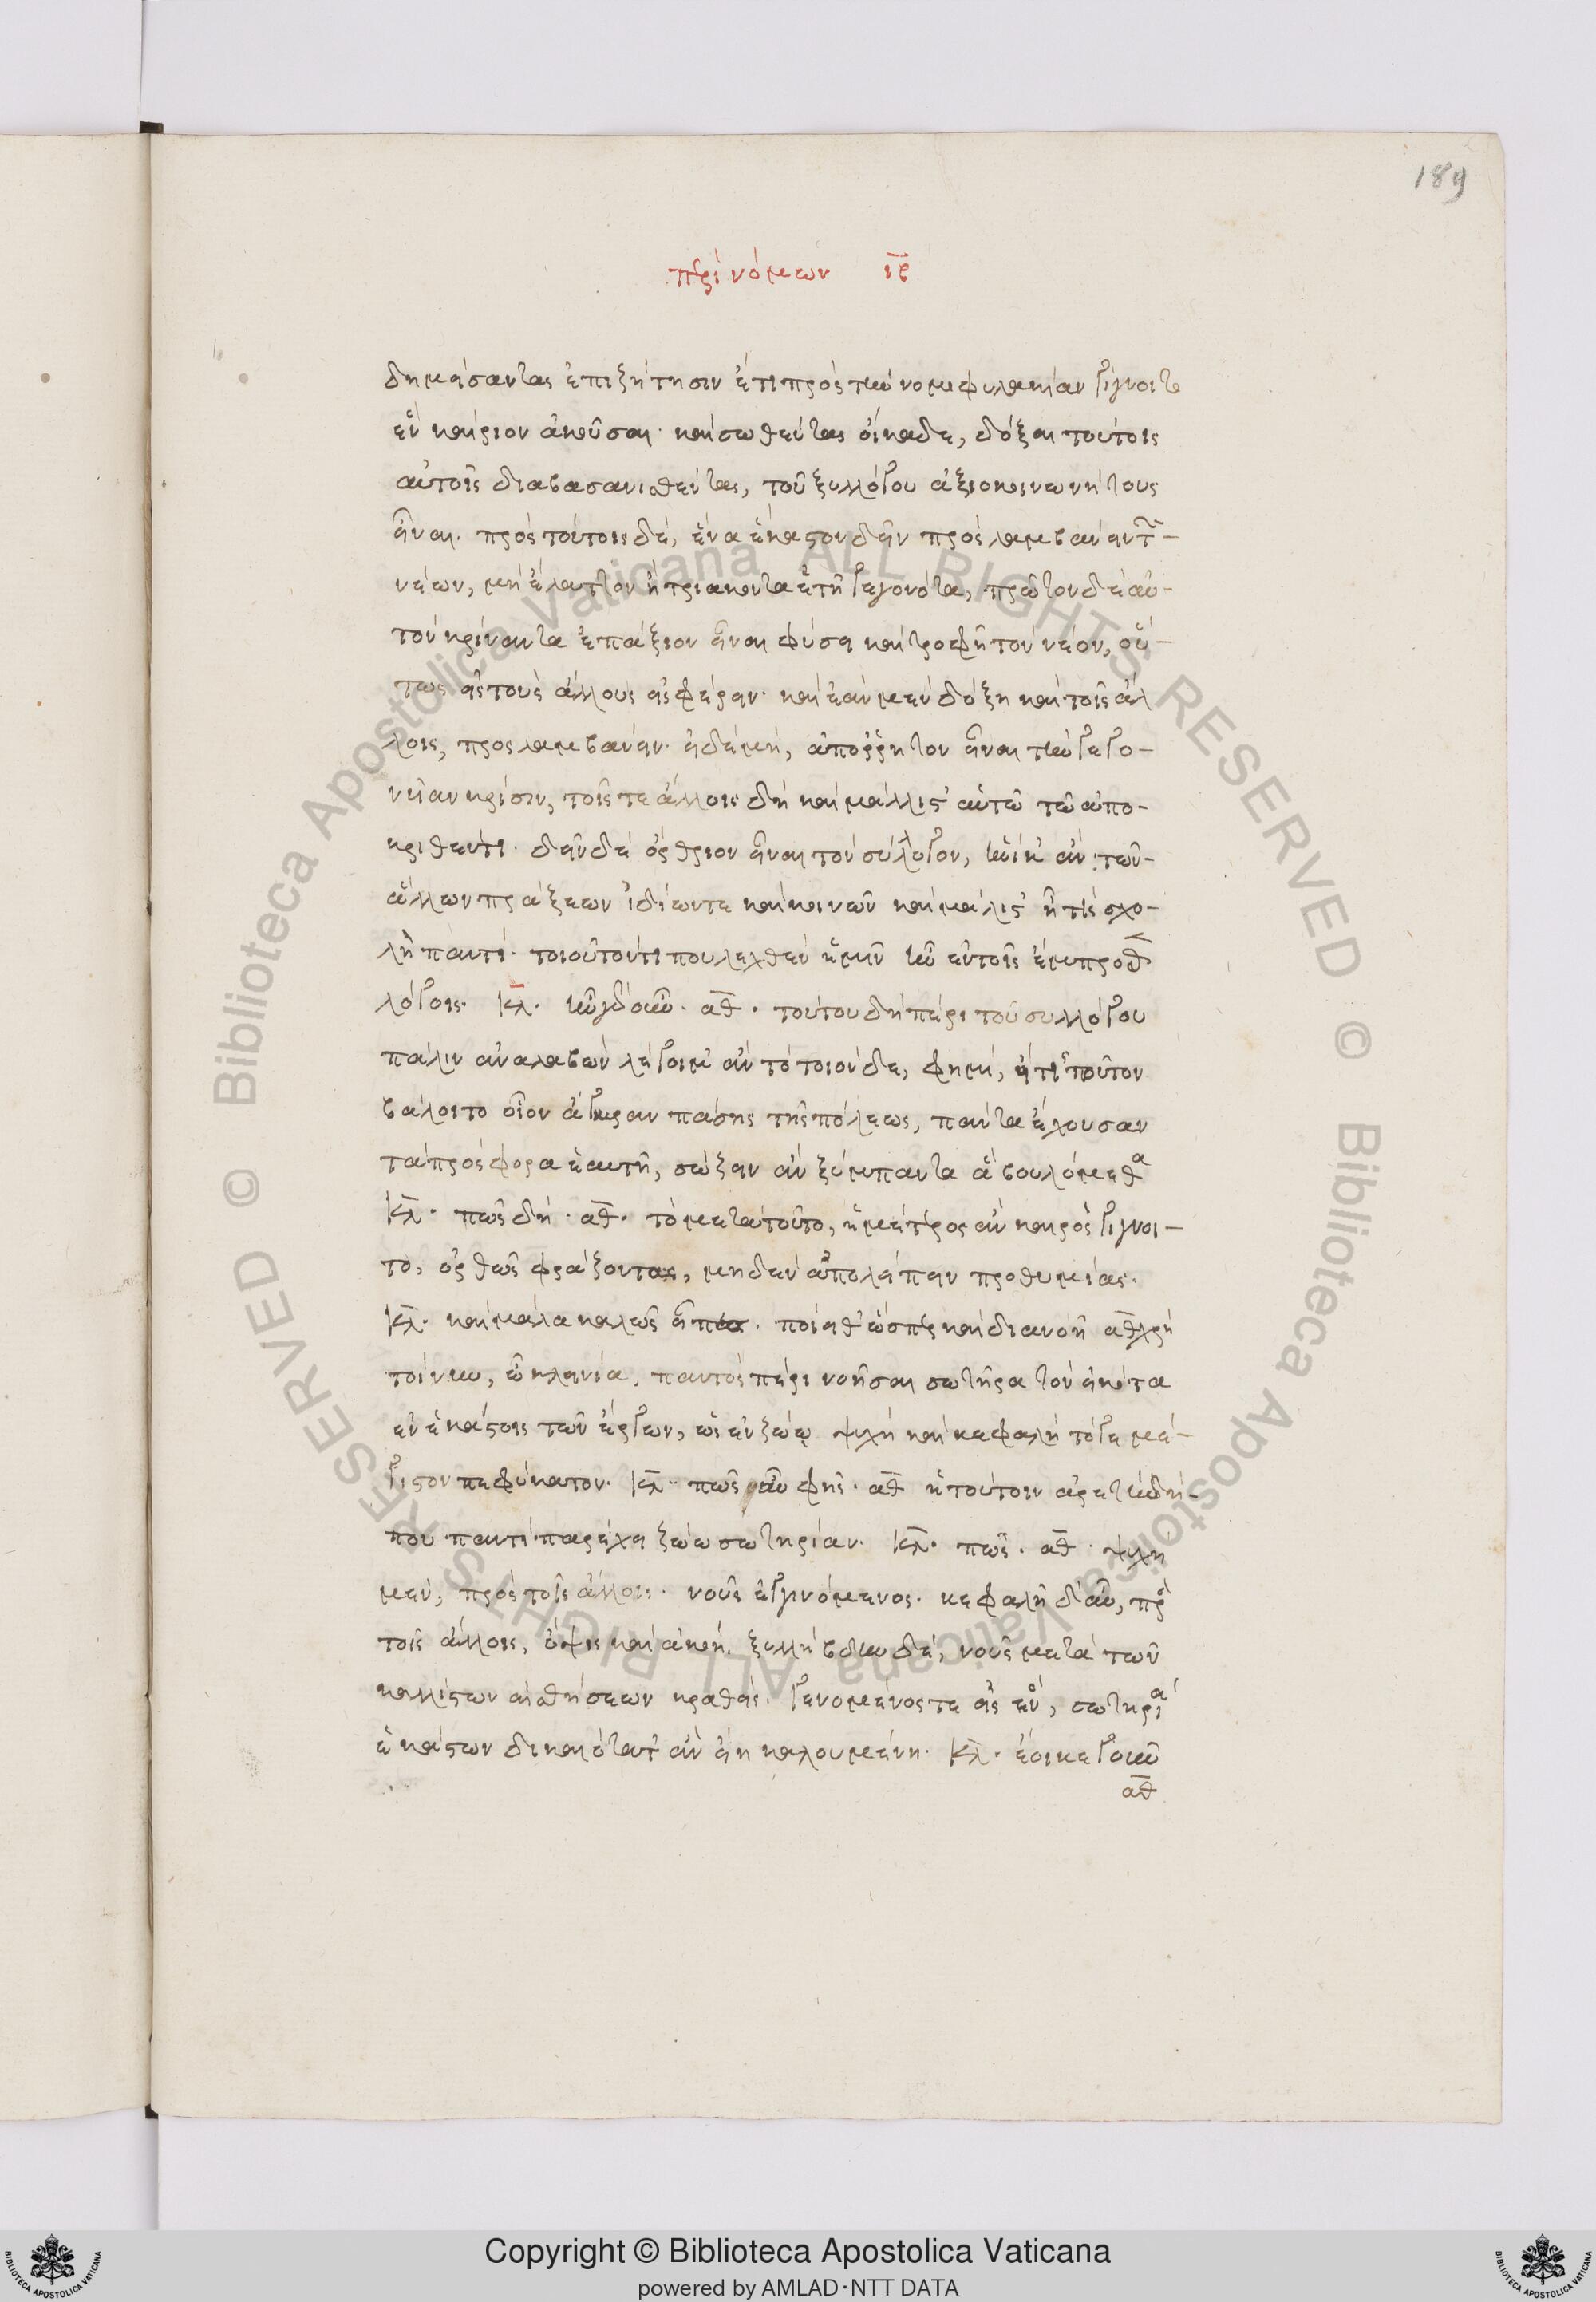 189
περὶ νόμων ιβ
δημήσαντας ἐπιζήτησιν ἔτι πρὸς τὴν νομοφυλακίαν γίγνοιτο
ἓν καίριον ἀκοῦσαι· καὶ σωθέντας οἴκαδε, δόξαι τούτοις
αὐτοῖς διαβασανισθέντας, τοῦ ξυλλόγου ἀξιοκοινωνήτους
εἶναι. πρὸς τούτοις δὲ, ἕνα ἕκαστον δεῖν προσλαμβάνειν τ̃-
νέων, μὴ ἔλαττον ἢ τριάκοντα ἔτη γεγονότα, πρῶτον δὲ αὐ-
τὸν κρίναντα ἐπάξιον εἶναι φύσει καὶ τροφῆ τὸν νέον, οὕ-
τως εἰς τοὺς ἄλλους εἰσφέρειν· καὶ ἐὰν μὲν δόξη καὶ τοῖς ἄλ
λοις, προσλαμβάνειν· εἰ δὲ μὴ, ἀπόρρητον εἶναι τὴν γεγο-
νυῖαν κρίσιν, τοῖς τε ἄλλοις δὴ καὶ μάλλιστ' αὐτῶ τῶ ἀπο-
κριθέντι· δεῖν δὲ ὄρθριον εἶναι τὸν σύλλογον, ἡνίκ' ἂν τῶν-
ἄλλων πράξεων ἰδίων τε καὶ κοινῶν καὶ μάλιστ' ἦ τίς σχο-
λὴ παντί· τοιοῦτόν τί που λεχθὲν ἡμῖν ἦν ἐν τοῖς ἔμπροσθ
λόγοις. κλ. ἦν γὰρ οὖν. αθ. τούτου δὴ πέρι τοῦ συλλόγου
πάλιν ἀναλαβὼν λέγοιμ' ἂν τὸ τοιόνδε, φημὶ, εἴ τις τοῦτον
βάλοιτο οἷον ἄγκυραν πάσης τῆς πόλεως, πάντα ἔχουσαν
τὰ πρόσφορα ἑαυτῆ, σώζειν ἂν ξύμπαντα ἃ βουλόμεθα
κλ. πῶς δή. αθ. τὸ μετὰ τοῦτο, ἡμέτερος ἂν καιρὸς γίγνοι-
το, ὀρθῶς φράζοντας, μηδὲν ἀπολείπειν προθυμίας.
κλ. καὶ μάλα καλῶς εἶπες. ποίει θ' ὥσπερ καὶ διανοῆ αθ χρὴ
τοίνυν, ὦ κλεινία, παντὸς πέρι νοῆσαι σωτῆρα τὸν εἰκότα
ἐν ἑκάστοις τῶν ἔργων, ὡς ἐν ζώῳ ψυχὴ καὶ κεφαλὴ τό γε μέ-
γιστον πεφύκατον. κλ. πῶς αὖ φής. αθ ἡ τούτοιν ἀρετὴ δή-
που παντὶ παρέχει ζώω σωτηρίαν. κλ. πῶς. αθ. ψυχῆ
μὲν, πρὸς τοῖς ἄλλοις. νοῦς ἐγγινόμενος. κεφαλῆ δ' αὖ, πρὸς
τοῖς ἄλλοις, ὄψις καὶ ἀκοή. ξυλλήβδην δὲ, νοῦς μετὰ τῶν
καλλίστων αἰσθήσεων κραθείς. γενόμενός τε εἰς ἓν, σωτηρία
ἑκάστων δικαιότατ' ἂν εἴη καλουμένη. κλ. ἔοικε γοῦν
αθ
Copyright © Biblioteca Apostolica Vaticana
powered by AMLAD·NTT DATA